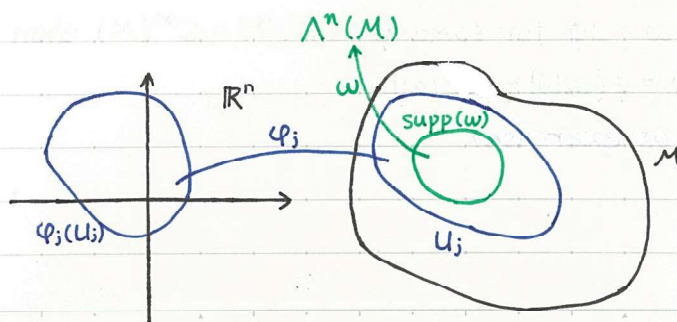 Λⁿ(M)
ℝⁿ
ω
φⱼ
supp(ω)
M
φⱼ(Uⱼ)
Uⱼ